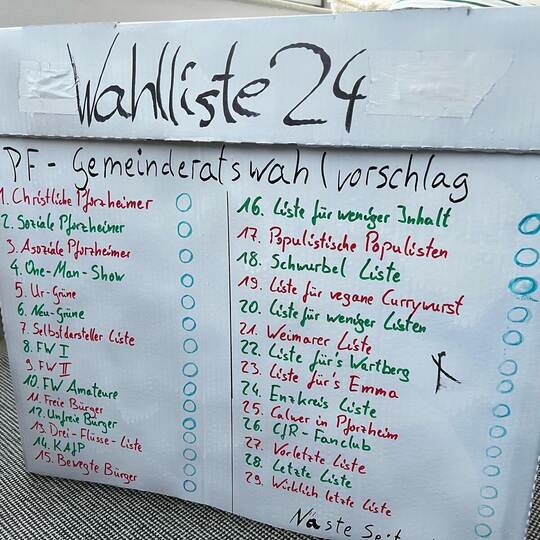 Wahlliste 24
PF - Gemeinderatswahlvorschlag
1. Christliche Pforzheimer
2. Soziale Pforzheimer
3. Asoziale Pforzheimer
4. One-Man-Show
5. Ur-Grüne
6. Neu-Grüne
7. Selbstdarsteller Liste
8. FW I
9. FW II
10. FW Amateure
11. Freie Bürger
12. Unfreie Bürger
13. Drei-Flüsse-Liste
14. KAfP
15. Bewegte Bürger
16. Liste für weniger Inhalt
17. Populistische Populisten
18. Schwurbel Liste
19. Liste für vegane Currywurst
20. Liste für weniger Listen
21. Weimarer Liste
22. Liste für's Wartberg
23. Liste für's Emma
24. Enzkreis Liste
25. Calwer in Pforzheim
26. CfR-Fanclub
27. Vorletzte Liste
28. Letzte Liste
29. Wirklich letzte Liste
Naste